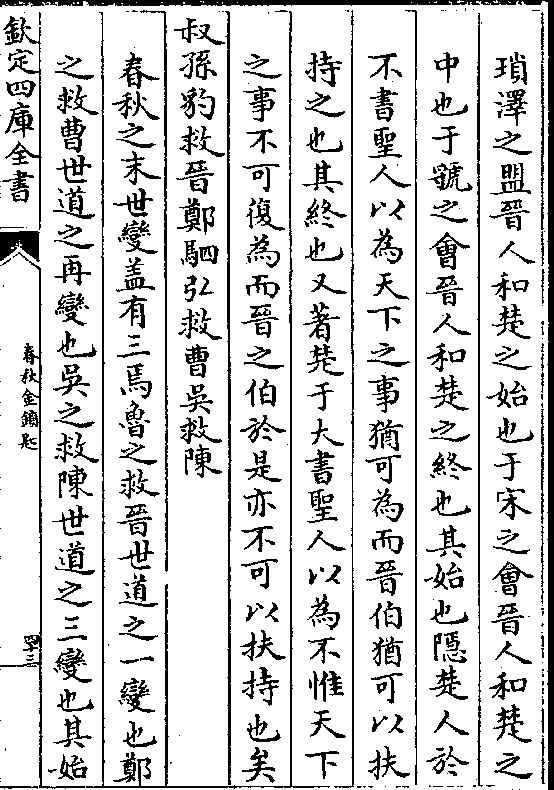 瑣澤之盟晉人和楚之始也于宋之會晉人和楚之
中也于虢之會晉人和楚之終也其始也隱楚人於
不書聖人以為天下之事猶可為而晉伯猶可以扶
持之也其終也又著楚于大書聖人以為不惟天下
之事不可復為而晉之伯於是亦不可以扶持也矣
叔孫豹救晉鄭駟弘救曹吳救陳
春秋之末世變盖有三焉魯之救晉世道之一變也鄭
之救曹世道之再變也吳之救陳世道之三變也其始
欽定四庫全書
春秋金鎖匙
四十三